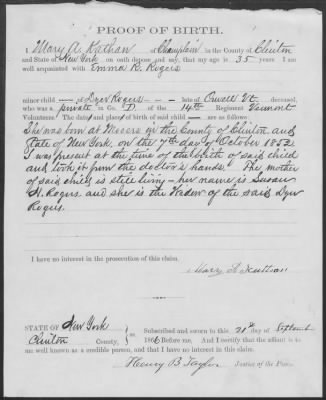 PROOF OF BIRTH.
I Mary A. Nathan of Champlain in the County of Clinton
and State of New York on oath depose and say, that my age is 35 years I am
well acquainted with Emma R. Rogers
minor child — of Dyer Rogers — — — late of Orwell Vt. deceased,
who was a private in Co. D. of the 14th Regiment Vermont
Volunteers. The date and place of birth of said child — are as follows:
She was born at Mooers in the County of Clinton and
State of New York, on the 7th day of October 1852
I was present at the time of the birth of said child
and took it from the doctor's hands. The mother
of said child is still living — her name is Susan
H. Rogers and she is the Widow of the said Dyer
Rogers.
I have no interest in the prosecution of this claim.
Mary A.
STATE OF New York
Clinton County, } ss. Subscribed and sworn to this 21st day of September
1866 Before me. And I certify that the affiant is to
me well known as a credible person, and that I have no interest in this claim.
Henry B. Taylor Justice of the Peace.